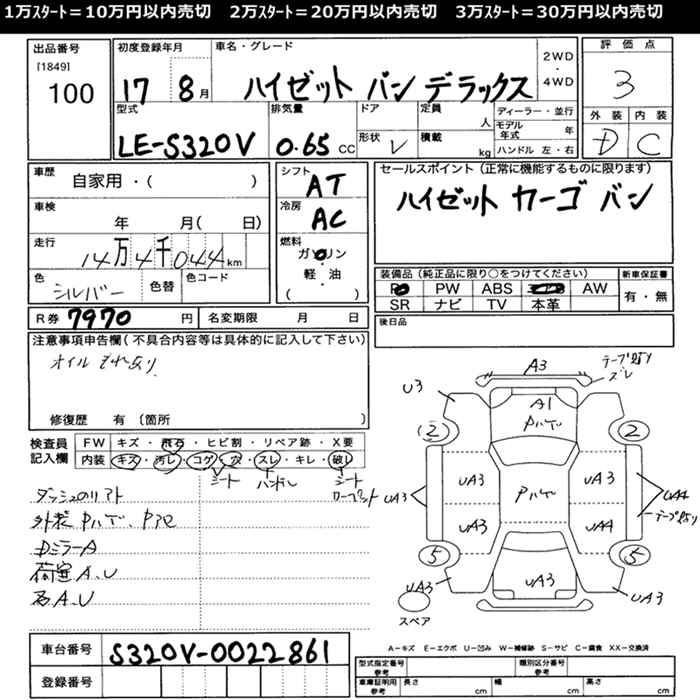 1万スタート=10万円以内売切 2万スタート=20万円以内売切 3万スタート=30万円以内売切
出品番号 初度登録年月 車名・グレード 2WD・4WD 評価点
[1849]
100 17 8月 ハイゼット バン デラックス 3
型式 排気量 ドア 定員 人 ディーラー・並行 外装 内装
モデル年式 年
LE-S320V 0.65 CC 形状 V 積載 kg ハンドル 左・右 D C
車歴 自家用・( ) シフト AT セールスポイント (正常に機能するものに限ります)
車検 年 月( 日) 冷房 AC ハイゼット カーゴ バン
走行 14万4千044km 燃料 ガソリン
軽・油
( )
色 シルバー 色替 色コード
装備品 (純正品に限り○をつけてください) 新車保証書
PW ABS AW 有・無
SR ナビ TV 本革
R券 7970 円 名変期限 月 日 後日品
注意事項申告欄 (不具合内容等は具体的に記入して下さい)
オイル
修復歴 有 〔箇所 〕
検査員記入欄 FW キズ・飛石・ヒビ割・リペア跡・X要
内装 キズ・汚レ・コゲ・穴・スレ・キレ・破レ
シート ハンドル シート
外装 Pハゲ、
DミラーA
荷室A、U
A、U
A3
テープ貼り
ズレ
U3
A1
Pハゲ
2 2
UA3 UA3 Pハゲ UA3 UA4
テープ貼り
UA3 UA4
5 5
UA3 UA3 UA3
スペア
A-キズ E-エクボ U-凹み W-補修跡 S-サビ C-腐食 XX-交換済
車台番号 S320V-0022861
登録番号
型式指定番号 参考 類別区分番号 参考
車庫証明用 参考 長さ cm 幅 cm 高さ cm